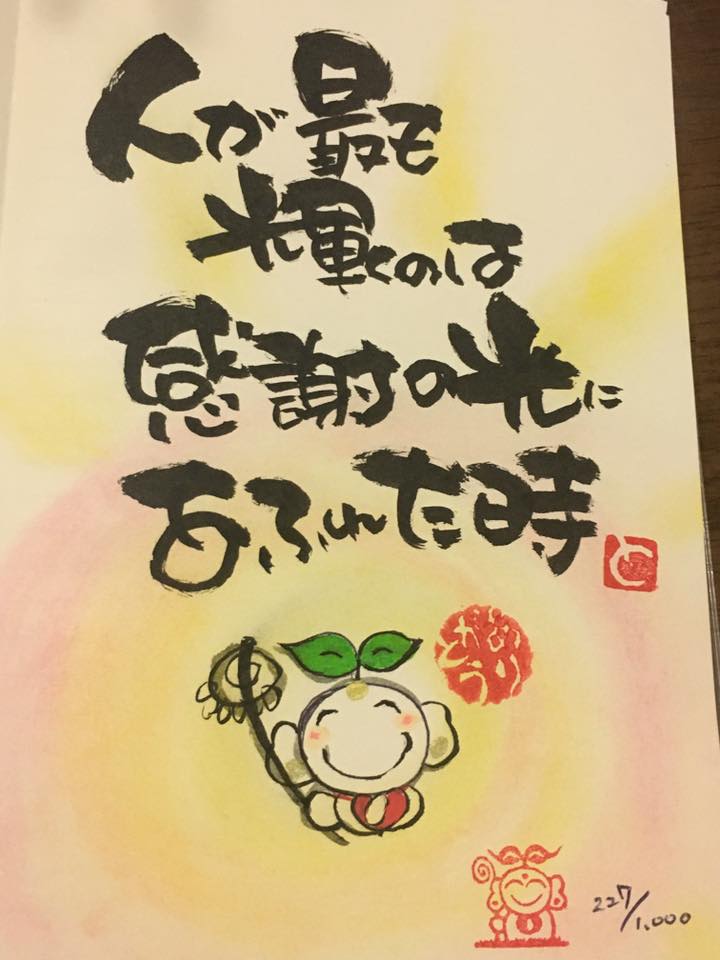 人が最も
輝くのは
感謝の光に
あふれた時
227/1,000